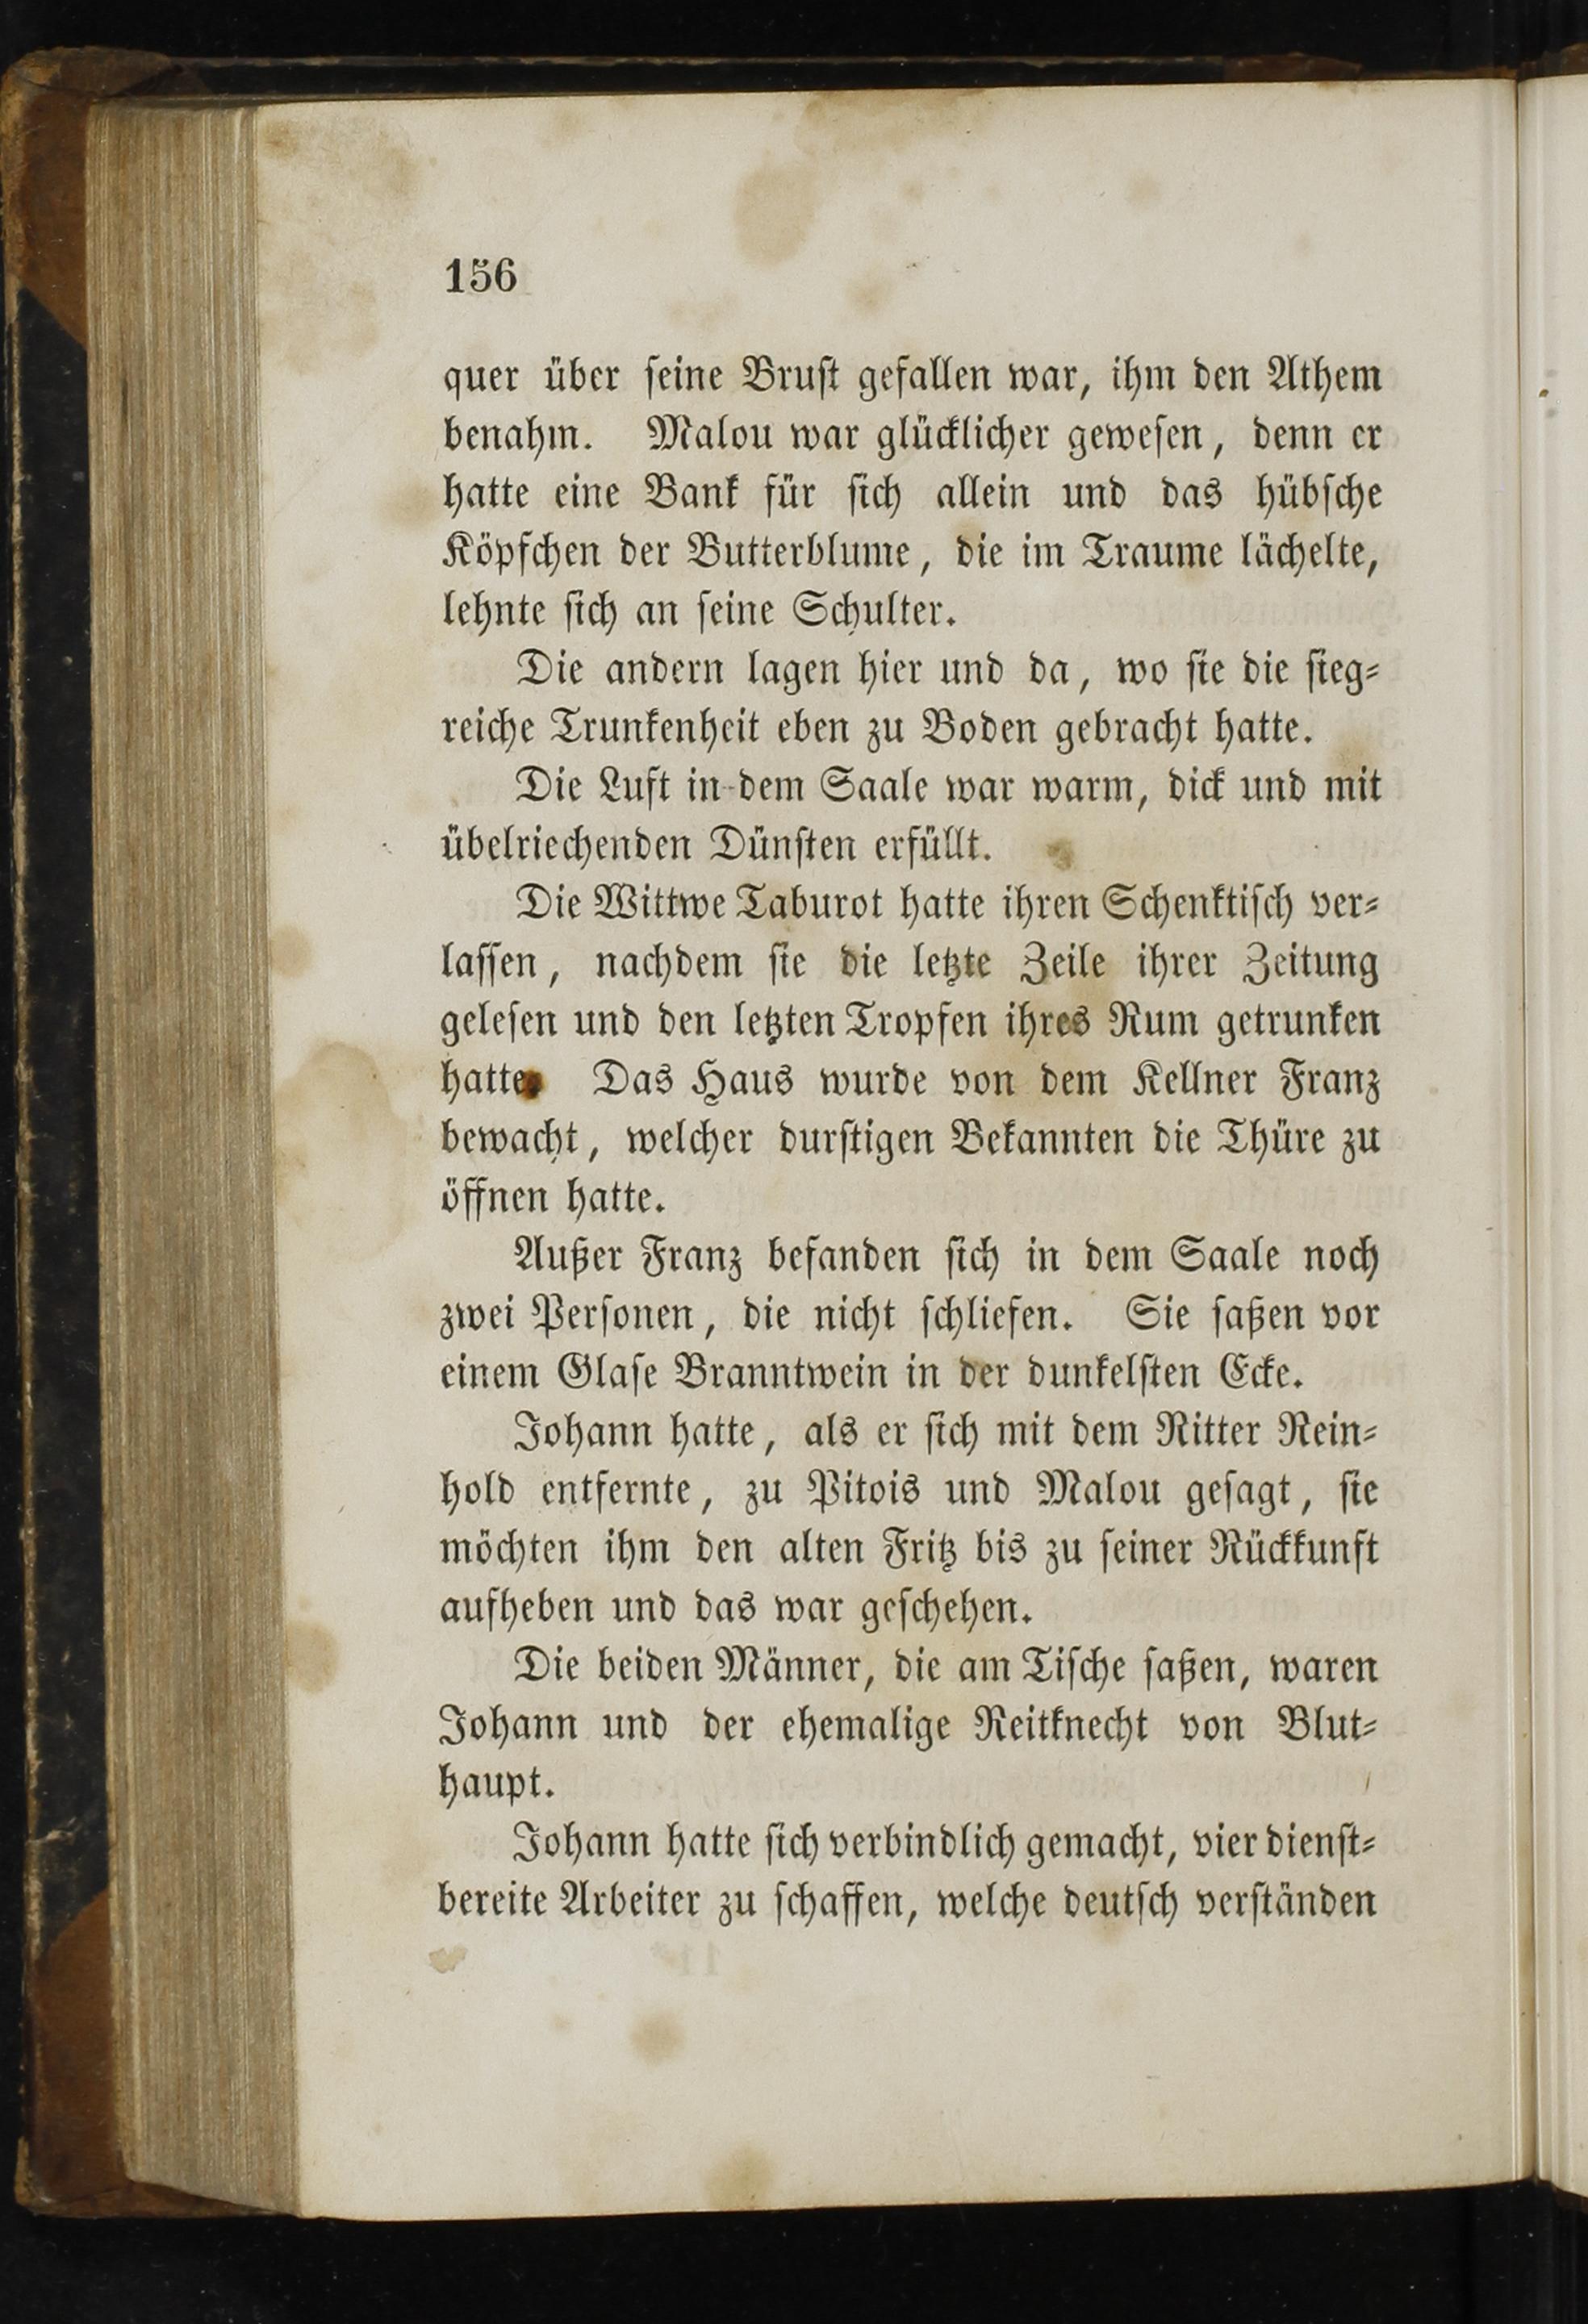 156
quer über ſeine Bruſt gefallen war, ihm den Athem
benahm. Malou war glücklicher geweſen, denn er
hatte eine Bank für ſich allein und das hübſche
Köpfchen der Butterblume, die im Traume lächelte,
lehnte ſich an ſeine Schulter.
Die andern lagen hier und da, wo ſie die ſieg⸗
reiche Trunkenheit eben zu Boden gebracht hatte.
Die Luft in dem Saale war warm, dick und mit
übelriechenden Dünſten erfüllt.
Die Wittwe Taburot hatte ihren Schenktiſch ver⸗
laſſen, nachdem ſie die letzte Zeile ihrer Zeitung
geleſen und den letzten Tropfen ihres Rum getrunken
hatte. Das Haus wurde von dem Kellner Franz
bewacht, welcher durſtigen Bekannten die Thüre zu
öffnen hatte.
Außer Franz befanden ſich in dem Saale noch
zwei Perſonen, die nicht ſchliefen. Sie ſaßen vor
einem Glaſe Branntwein in der dunkelſten Ecke.
Johann hatte, als er ſich mit dem Ritter Rein⸗
hold entfernte, zu Pitois und Malou geſagt, ſie
möchten ihm den alten Fritz bis zu ſeiner Rückkunft
aufheben und das war geſchehen.
Die beiden Männer, die am Tiſche ſaßen, waren
Johann und der ehemalige Reitknecht von Blut⸗
haupt.
Johann hatte ſich verbindlich gemacht, vier dienſt⸗
bereite Arbeiter zu ſchaffen, welche deutſch verſtänden